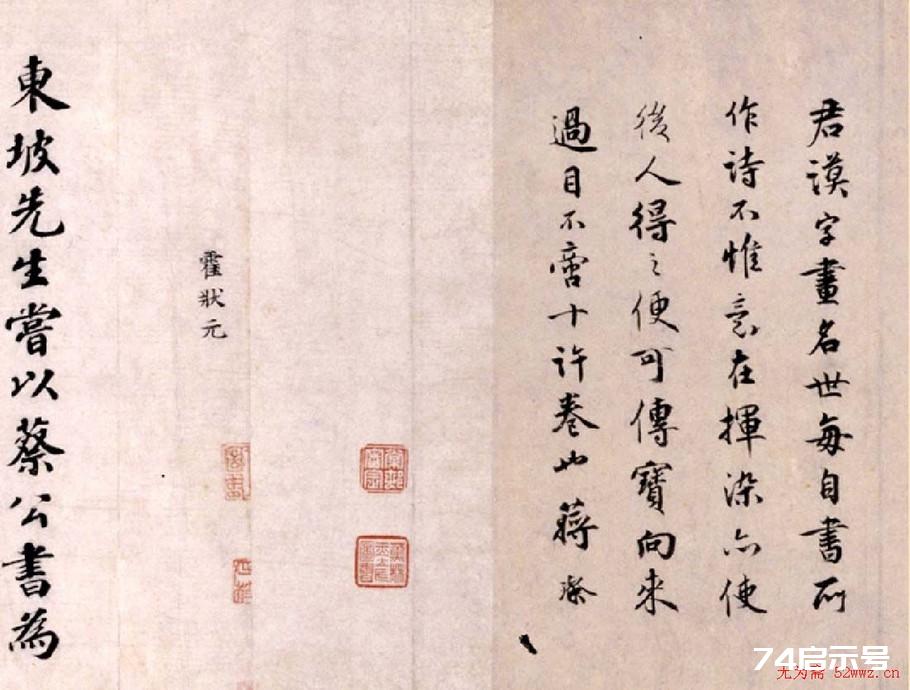 君謨字畫名世每自書所
作詩不惟意在揮染亦使
後人得之便可傳寶向來
過目不啻十許卷也蔣璨
霍狀元
東坡先生嘗以蔡公書為
74启示号
无为斋 52wwz.cn